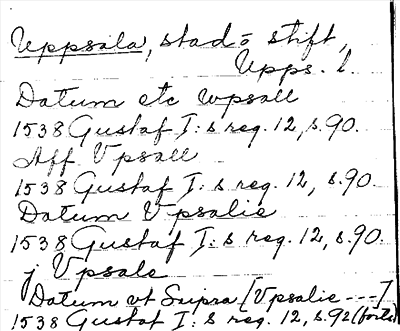 Uppsala, stad o stift,
Upps. l.
Datum etc vpsall
1538 Gustaf I: s reg. 12, s. 90.
Aff Vpsall
1538 Gustaf I: s reg. 12, s. 90.
Datum Vpsalie
1538 Gustaf I: s reg. 12, s. 90.
j Vpsale
Datum vt Supra [Vpsalie ---]
1538 Gustaf I: s reg. 12, s. 92 (forts)